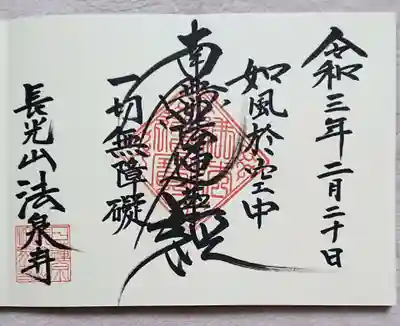 令和三年二月二十日
如風於空中
南無妙法蓮華経
一切無障礙
長光山法泉寺